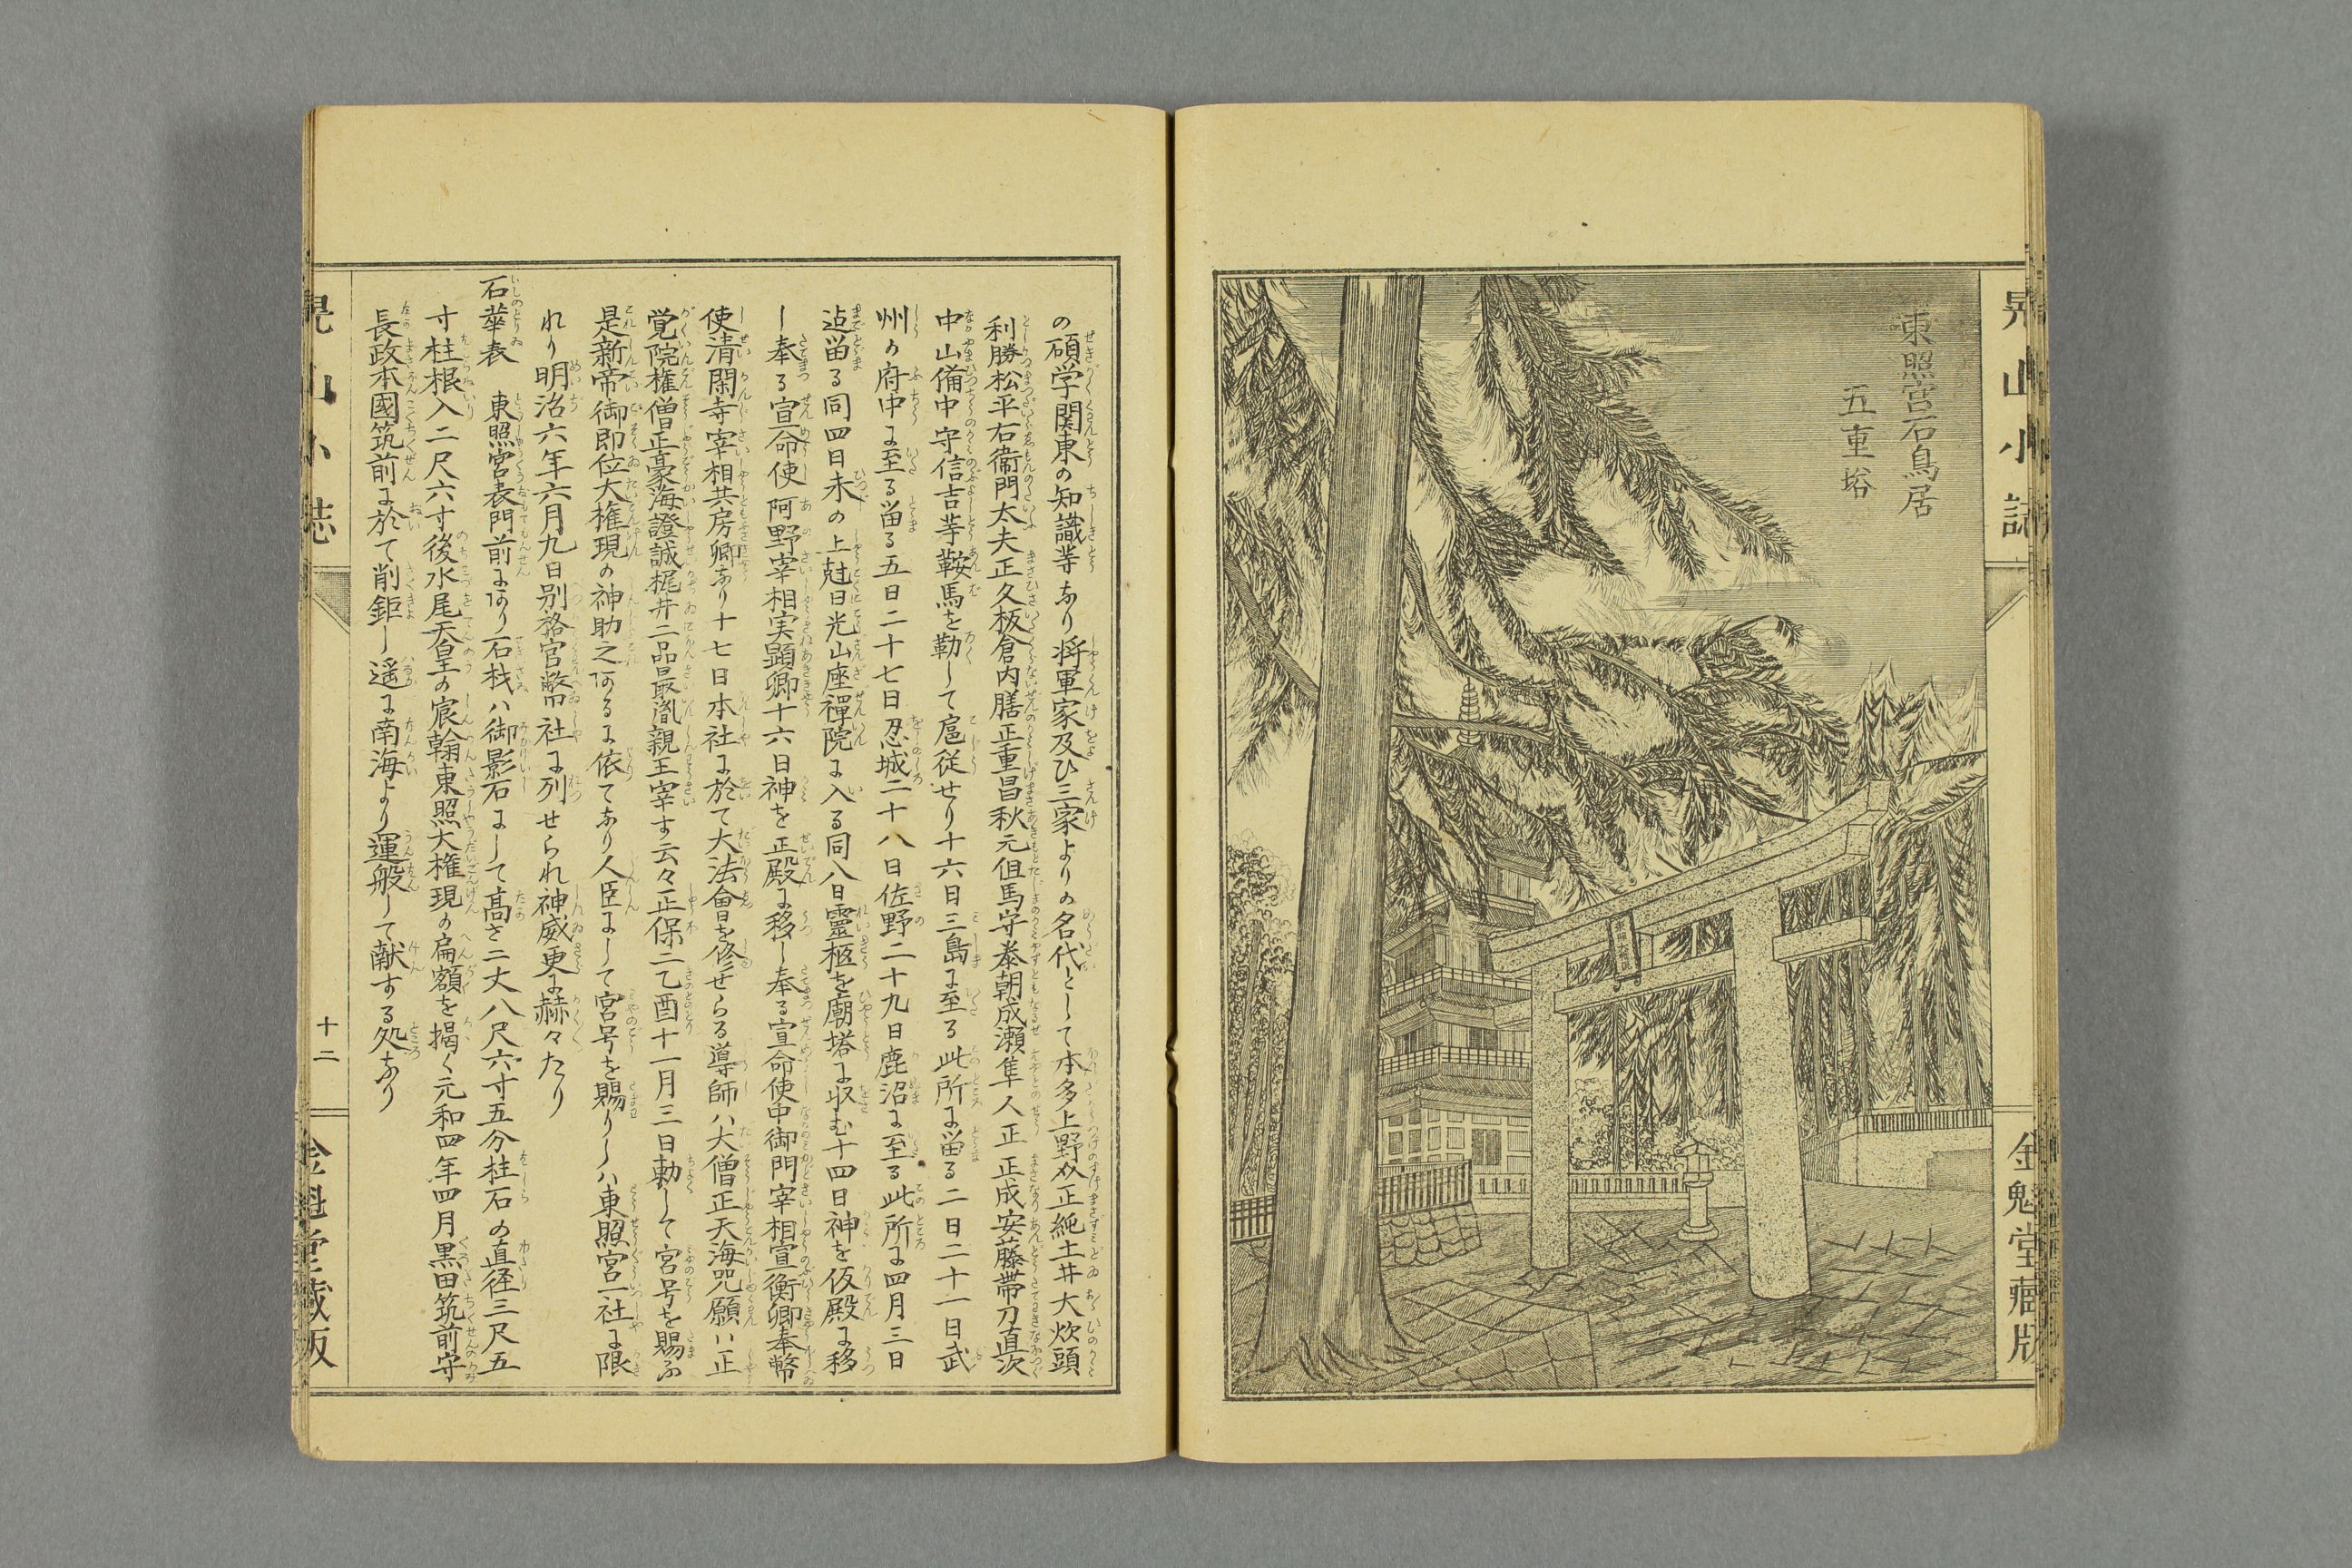 晃山小誌
金魁堂藏版
東照宮石鳥居
五重塔
の碩学関東の知識等なり将軍家及ひ三家よりの名代として本多上野介正純土井大炊頭
利勝松平右衞門太夫正久板倉内膳正重昌秋元但馬守泰朝成瀬隼人正正成安藤帯刀直次
中山備中守信吉等鞍馬を勒して扈従せり十六日三島に至る此所に畄る二日二十一日武
州の府中に至る畄る五日二十七日忍城二十八日佐野二十九日鹿沼に至る此所に四月三日
迠畄る同四日未の上尅日光山座禪院に入る同八日靈柩を廟塔に収む十四日神を仮殿に移
し奉る宣命使阿野宰相実顕卿十六日神を正殿に移し奉る宣命使中御門宰相宣衡卿奉幣
使清閑寺宰相共房卿なり十七日本社に於て大法會を修せらる導師ハ大僧正天海咒願ハ正
覚院権僧正豪海證誠梶井二品最胤親王宰す云々正保二乙酉十一月三日勅して宮号を賜ふ
是新帝御即位大権現の神助之れあるに依てなり人臣にして宮号を賜りしハ東照宮一社に限
れり明治六年六月九日別格官幣社に列せられ神威更に赫々たり
石華表　東照宮表門前にあり石材ハ御影石にして高さ二丈八尺六寸五分柱石の直径三尺五
寸柱根入二尺六寸後水尾天皇の宸翰東照大権現の扁額を掲く元和四年四月黒田筑前守
長政本國筑前に於て削鉅し遥に南海より運般して献する処なり
晃山小誌
十二
金魁堂藏版